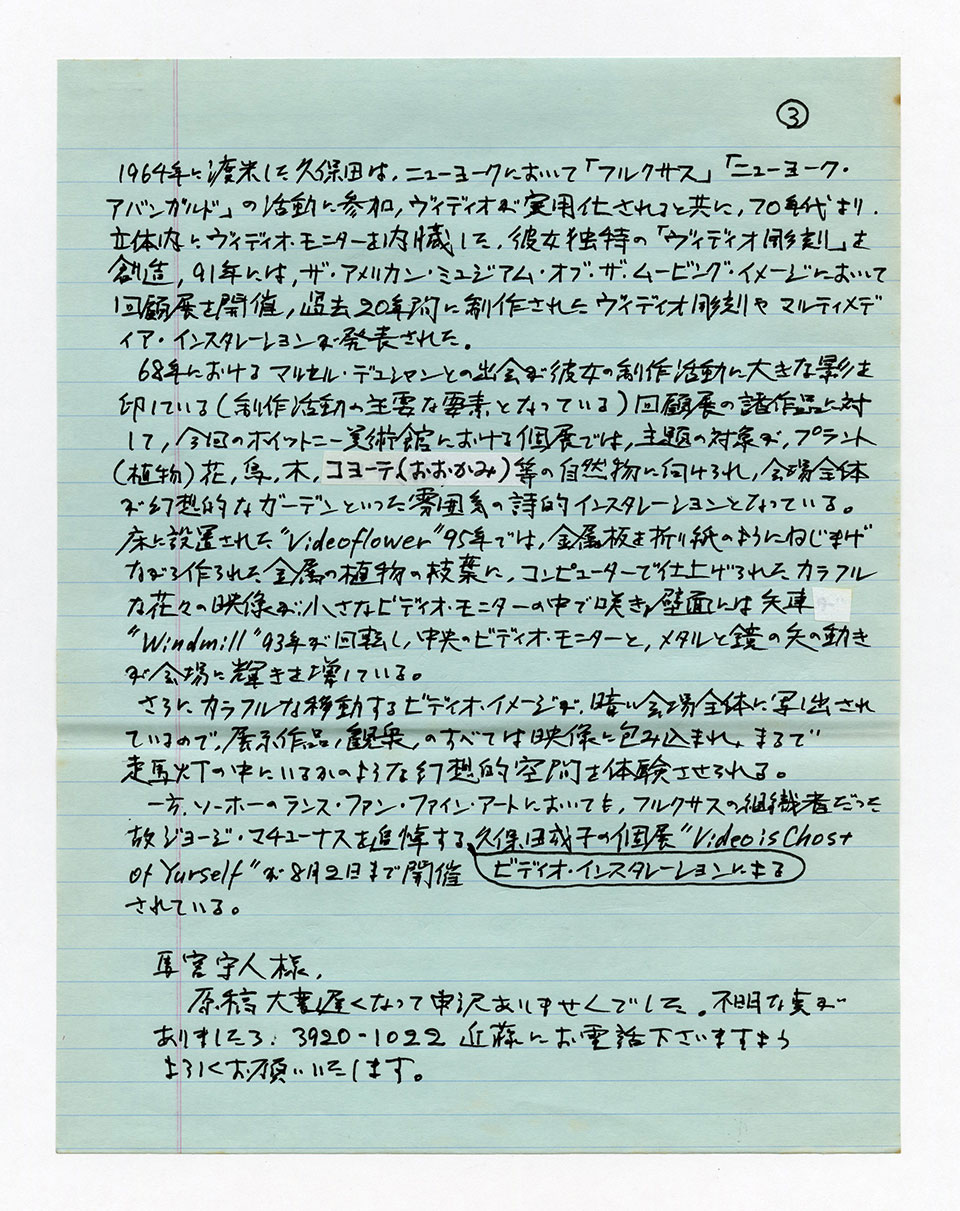 ③
1964年に渡米した久保田は,ニューヨークにおいて「フルクサス」「ニューヨーク・
アバンガルド」の活動に参加,ヴィディオが実用化されると共に,70年代より.
立体内にヴィディオ・モニターを内臓した,彼女独特の「ヴィディオ彫刻」を
創造,91年には,ザ・アメリカン・ミュジアム・オブ・ザ・ムービング・イメージにおいて
回顧展を開催,過去20年間に制作されたヴィディオ彫刻やマルティメデ
ィア・インスタレーションが発表された。
68年におけるマルセル・デュシャンとの出会が彼女の制作活動に大きな影を
印している(制作活動の主要な要素となっている)回顧展の諸作品に対
して,今回のホイットニー美術館における個展では,主題の対象が,プラント
(植物)花,鳥,木,コヨーテ(おおかみ)等の自然物に向けられ,会場全体
が幻想的なガーデンといった雰囲気の詩的インスタレーションとなっている。
床に設置された"Videoflower"95年では,金属板を折り紙のようにねじまげ
ながら作られた金属の植物の枝葉に,コンピューターで仕上げられたカラフル
な花々の映像が小さなビディオ・モニターの中で咲き,壁面には矢車
"Windmill"93年が回転し,中央のビディオ・モニターと,メタルと鏡の矢の動き
が会場に輝きを増している。
さらにカラフルな移動するビディオ・イメージが,暗い会場全体に写し出され
ているので,展示作品,観衆,のすべては映像に包み込まれ,まるで
走馬灯の中にいるかのような幻想的空間を体験させられる。
一方,ソーホーのランス・ファン・ファイン・アートにおいても,フルクサスの組織者だった
故ジョージ・マチューナスを追悼する,久保田成子の個展"Video is Ghost
of Yurself"が8月2日まで開催
ビディオ・インスタレーションによる
されている。
馬宮守人様,
原稿大変遅くなって申沢ありませんでした。不明な点が
ありましたら,3920-1022 近藤にお電話下さいますよう
よろしくお願いいたします。